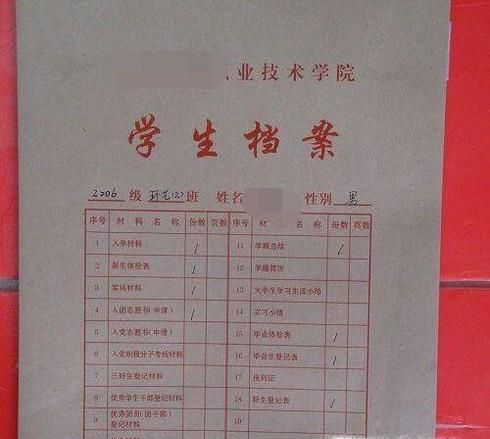 业技术学院
学生档案
2006 级 环艺(2) 班 姓名 性别 男
序号 材料名称 份数 页数 序号 材料名称 份数 页数
1 入学材料 / 11 学期总结 /
2 新生体检表 / 12 学籍简历
3 军训材料 / 13 大学生学习生活小结
4 入团志愿书(申请) / 14 实习小结
5 入党志愿书(申请) 15 毕业体检表 /
6 入党积极分子考核材料 16 毕业生登记表 /
7 三好生登记材料 17 报到证
8 优秀学生干部登记材料 18 新生登记表 /
9 优秀团员(团干部)登记材料 19